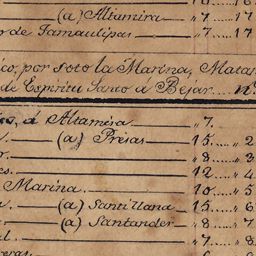 (a) Altamira „7. 17
de Tamaulipas „7. 17
ico, por soto la Marina, Matam
de Espiritu Santo a Bejar
á Altamira „7.
(a) Presas 15. „ 2
„8. „ 3
12. „ 4
Marina. 10. „ 5
(a) Santillana 15. „ 6
(a) Santander „8. „ 7
„7. „ 8